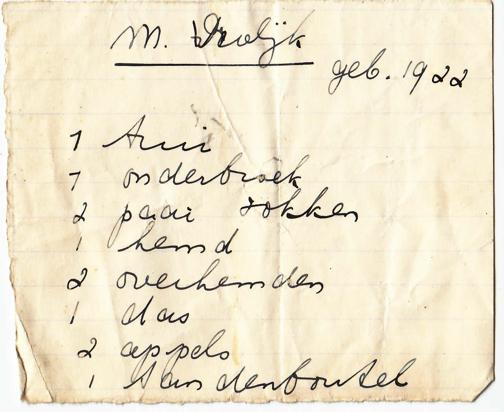 M.
geb. 1922
1 trui
1 onderbroek
2 paar sokken
1 hemd
2 overhemden
1 das
2 appels
1 tandenborstel